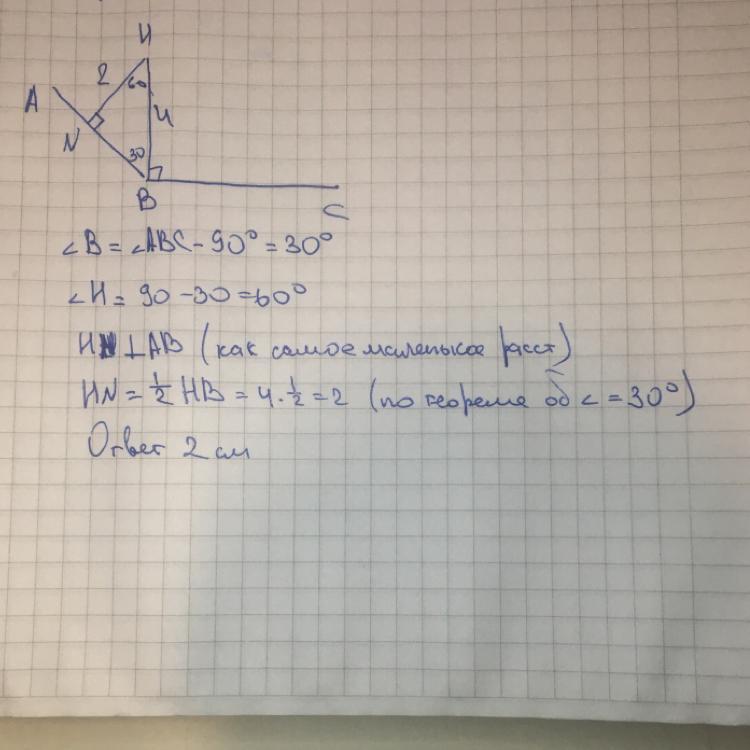 H
2
60
A
4
N
30
B
C
∠B = ∠ABC - 90° = 30°
∠H = 90 - 30 = 60°
HN ⊥ AB (как самое маленькое расст)
HN = 1/2 HB = 4 · 1/2 = 2 (по теореме об ∠ = 30°)
Ответ 2 см